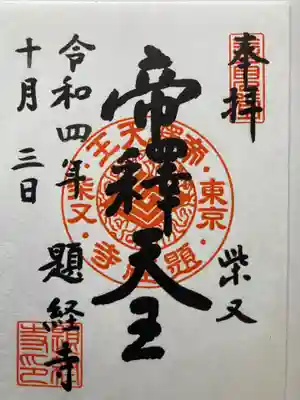 奉拝
柴又
帝釋天王
帝釋天王
東京
柴又
題経寺
令和四年
題経寺
十月三日